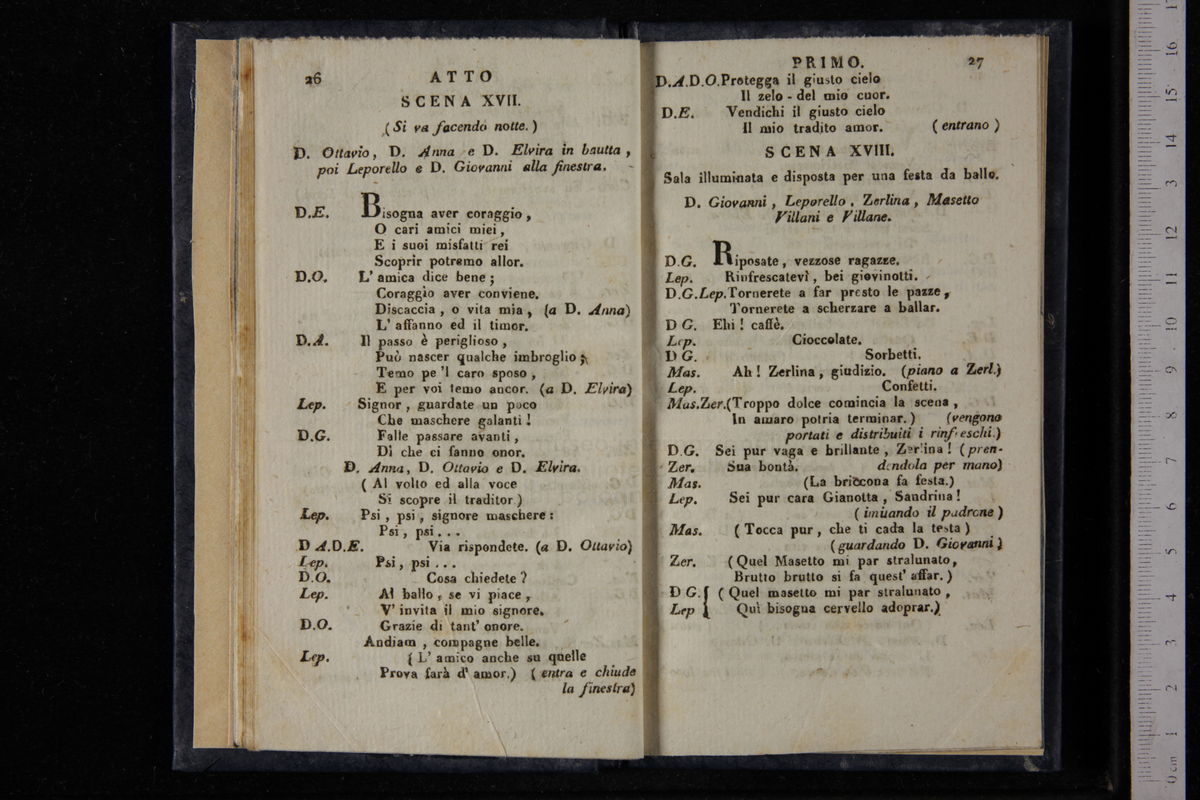 26
ATTO
SCENA XVII.
(Si va facendo notte.)
D. Ottavio, D. Anna e D. Elvira in bautta,
poi Leporello e D. Giovanni alla finestra.
D.E. Bisogna aver coraggio,
O cari amici miei,
E i suoi misfatti rei
Scoprir potremo allor.
D.O. L' amica dice bene;
Coraggio aver conviene.
Discaccia, o vita mia, (a D. Anna)
L' affanno ed il timor.
D.A. Il passo è periglioso,
Può nascer qualche imbroglio;
Temo pe 'l caro sposo,
E per voi temo ancor. (a D. Elvira)
Lep. Signor, guardate un poco
Che maschere galanti!
D.G. Falle passare avanti,
Di che ci fanno onor.
D. Anna, D. Ottavio e D. Elvira.
(Al volto ed alla voce
Si scopre il traditor)
Lep. Psi, psi, signore maschere:
Psi, psi...
D A.D.E. Via rispondete. (a D. Ottavio)
Lep. Psi, psi...
D.O. Cosa chiedete?
Lep. Al ballo, se vi piace,
V' invita il mio signore.
D.O. Grazie di tant' onore.
Andiam, compagne belle.
Lep. (L' amico anche su quelle
Prova farà d' amor.) (entra e chiude
la finestra)
PRIMO.
27
D.A.D.O. Protegga il giusto cielo
Il zelo - del mio cuor.
D.E. Vendichi il giusto cielo
Il mio tradito amor. (entrano)
SCENA XVIII.
Sala illuminata e disposta per una festa da ballo.
D. Giovanni, Leporello, Zerlina, Masetto
Villani e Villane.
D.G. Riposate, vezzose ragazze.
Lep. Rinfrescatevi, bei giovinotti.
D.G.Lep. Tornerete a far presto le pazze,
Tornerete a scherzare a ballar.
D G. Ehi! caffè.
Lep. Cioccolate.
D G. Sorbetti.
Mas. Ah! Zerlina, giudizio. (piano a Zerl.)
Lep. Confetti.
Mas.Zer. (Troppo dolce comincia la scena,
In amaro potria terminar.) (vengono
portati e distribuiti i rinfreschi.)
D.G. Sei pur vaga e brillante, Zerlina! (pren-
Zer. Sua bontà. dendola per mano)
Mas. (La briccona fa festa.)
Lep. Sei pur cara Gianotta, Sandrina!
(imitando il padrone)
Mas. (Tocca pur, che ti cada la testa)
(guardando D. Giovanni)
Zer. (Quel Masetto mi par stralunato,
Brutto brutto si fa quest' affar.)
D G. { (Quel masetto mi par stralunato,
Lep { Quì bisogna cervello adoprar.)
0 cm 1 2 3 4 5 6 7 8 9 10 11 12 13 14 15 16 17